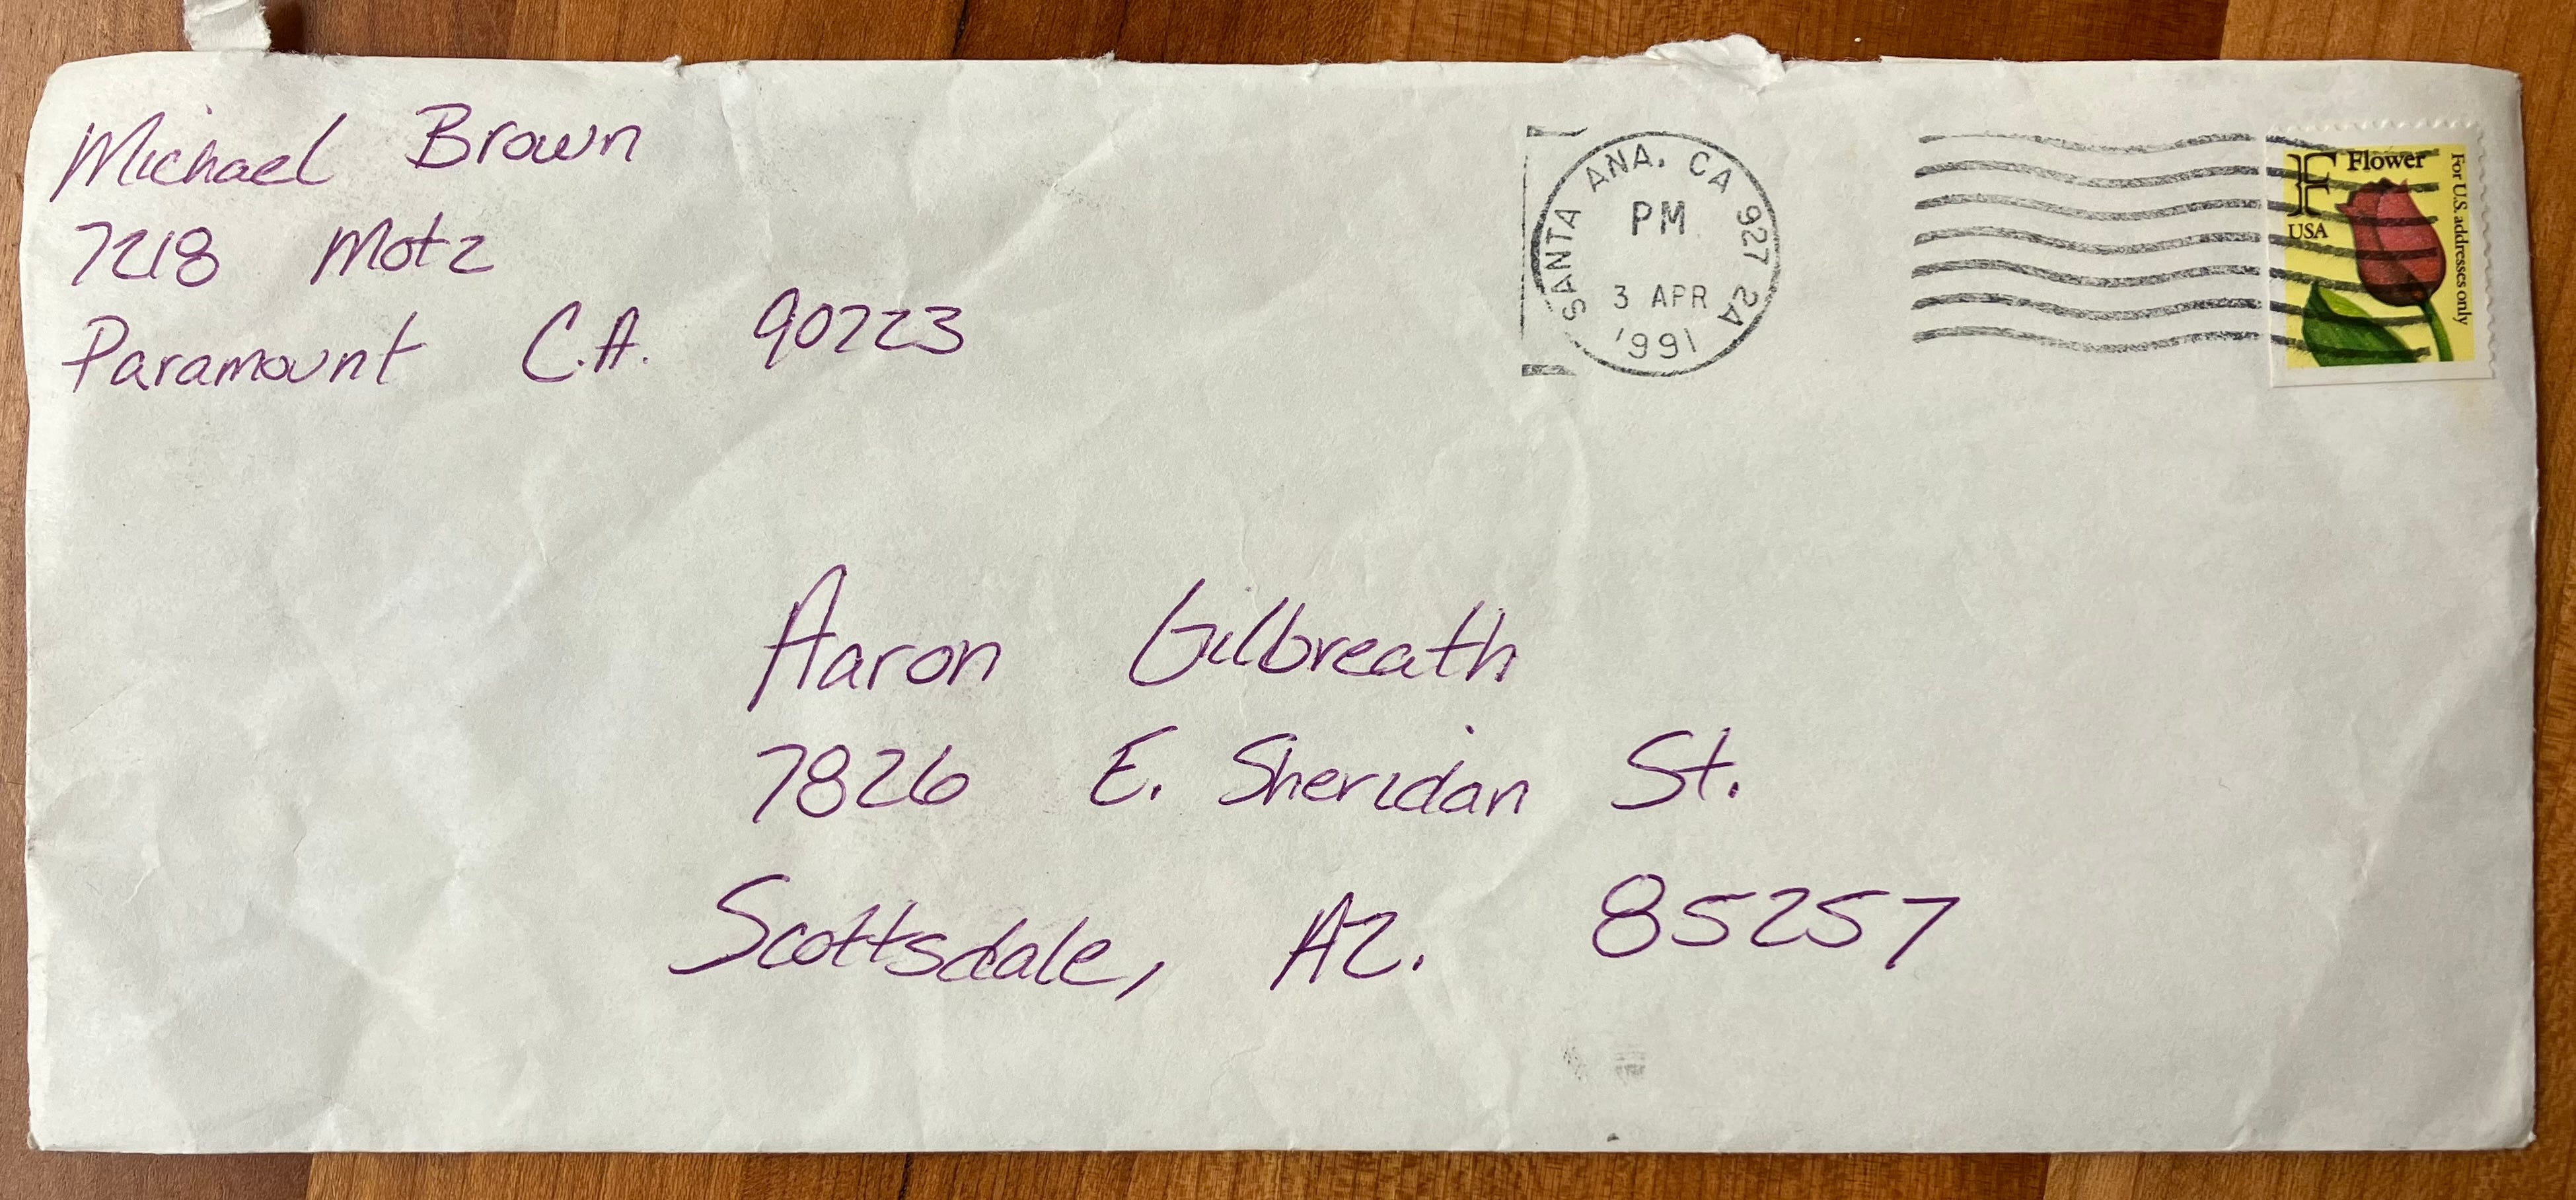 Michael Brown
7218 Motz
Paramount C.A. 90723
SANTA ANA, CA 927 2A
PM
3 APR
1991
F Flower
USA
For U.S. addresses only
Aaron Gilbreath
7826 E. Sheridan St.
Scottsdale, AZ. 85257